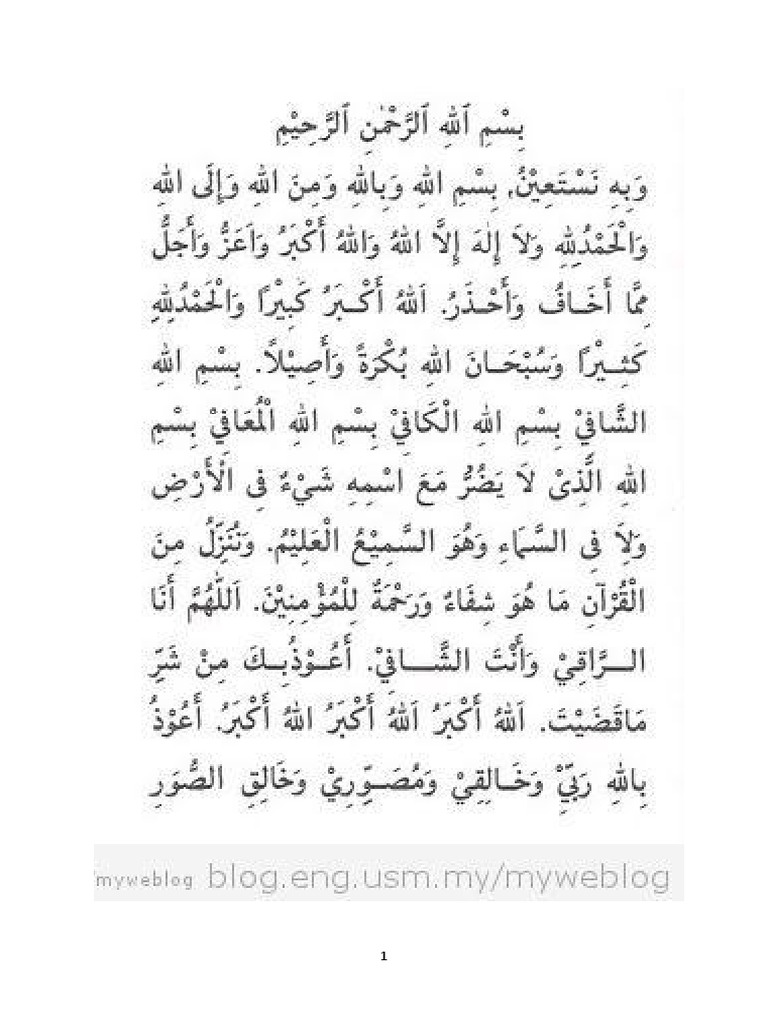 بِسْمِ ٱللهِ ٱلرَّحْمٰنِ ٱلرَّحِيْمِ
وَبِهِ نَسْتَعِيْنُ, بِسْمِ اللهِ وَبِاللهِ وَمِنَ اللهِ وَإِلَى اللهِ
وَالْحَمْدُلِلهِ وَلاَ إِلٰهَ إِلاَّ اللهُ وَاللهُ أَكْبَرُ وَاَعَزُّ وَأَجَلُّ
مِمَّا أَخَافُ وَأَحْذَرُ. اَللهُ أَكْبَرُ كَبِيْرًا وَالْحَمْدُلِلهِ
كَثِيْرًا وَسُبْحَانَ اللهِ بُكْرَةً وَأَصِيْلاً. بِسْمِ اللهِ
الشَّافِيْ بِسْمِ اللهِ الْكَافِيْ بِسْمِ اللهِ الْمُعَافِيْ بِسْمِ
اللهِ الَّذِىْ لاَ يَضُرُّ مَعَ اسْمِهِ شَيْءٌ فِى الْأَرْضِ
وَلاَ فِى السَّمَاءِ وَهُوَ السَّمِيْعُ الْعَلِيْمُ. وَنُنَزِّلُ مِنَ
الْقُرْآنِ مَا هُوَ شِفَاءٌ وَرَحْمَةٌ لِلْمُؤْمِنِيْنَ. اَللّٰهُمَّ أَنَا
الرَّاقِيْ وَأَنْتَ الشَّافِيْ. أَعُوْذُبِكَ مِنْ شَرِّ
مَاقَضَيْتَ. اَللهُ أَكْبَرُ اَللهُ أَكْبَرُ اللهُ أَكْبَرُ. أَعُوْذُ
بِاللهِ رَبِّيْ وَخَالِقِيْ وَمُصَوِّرِيْ وَخَالِقِ الصُّوَرِ
/myweblog blog.eng.usm.my/myweblog
1